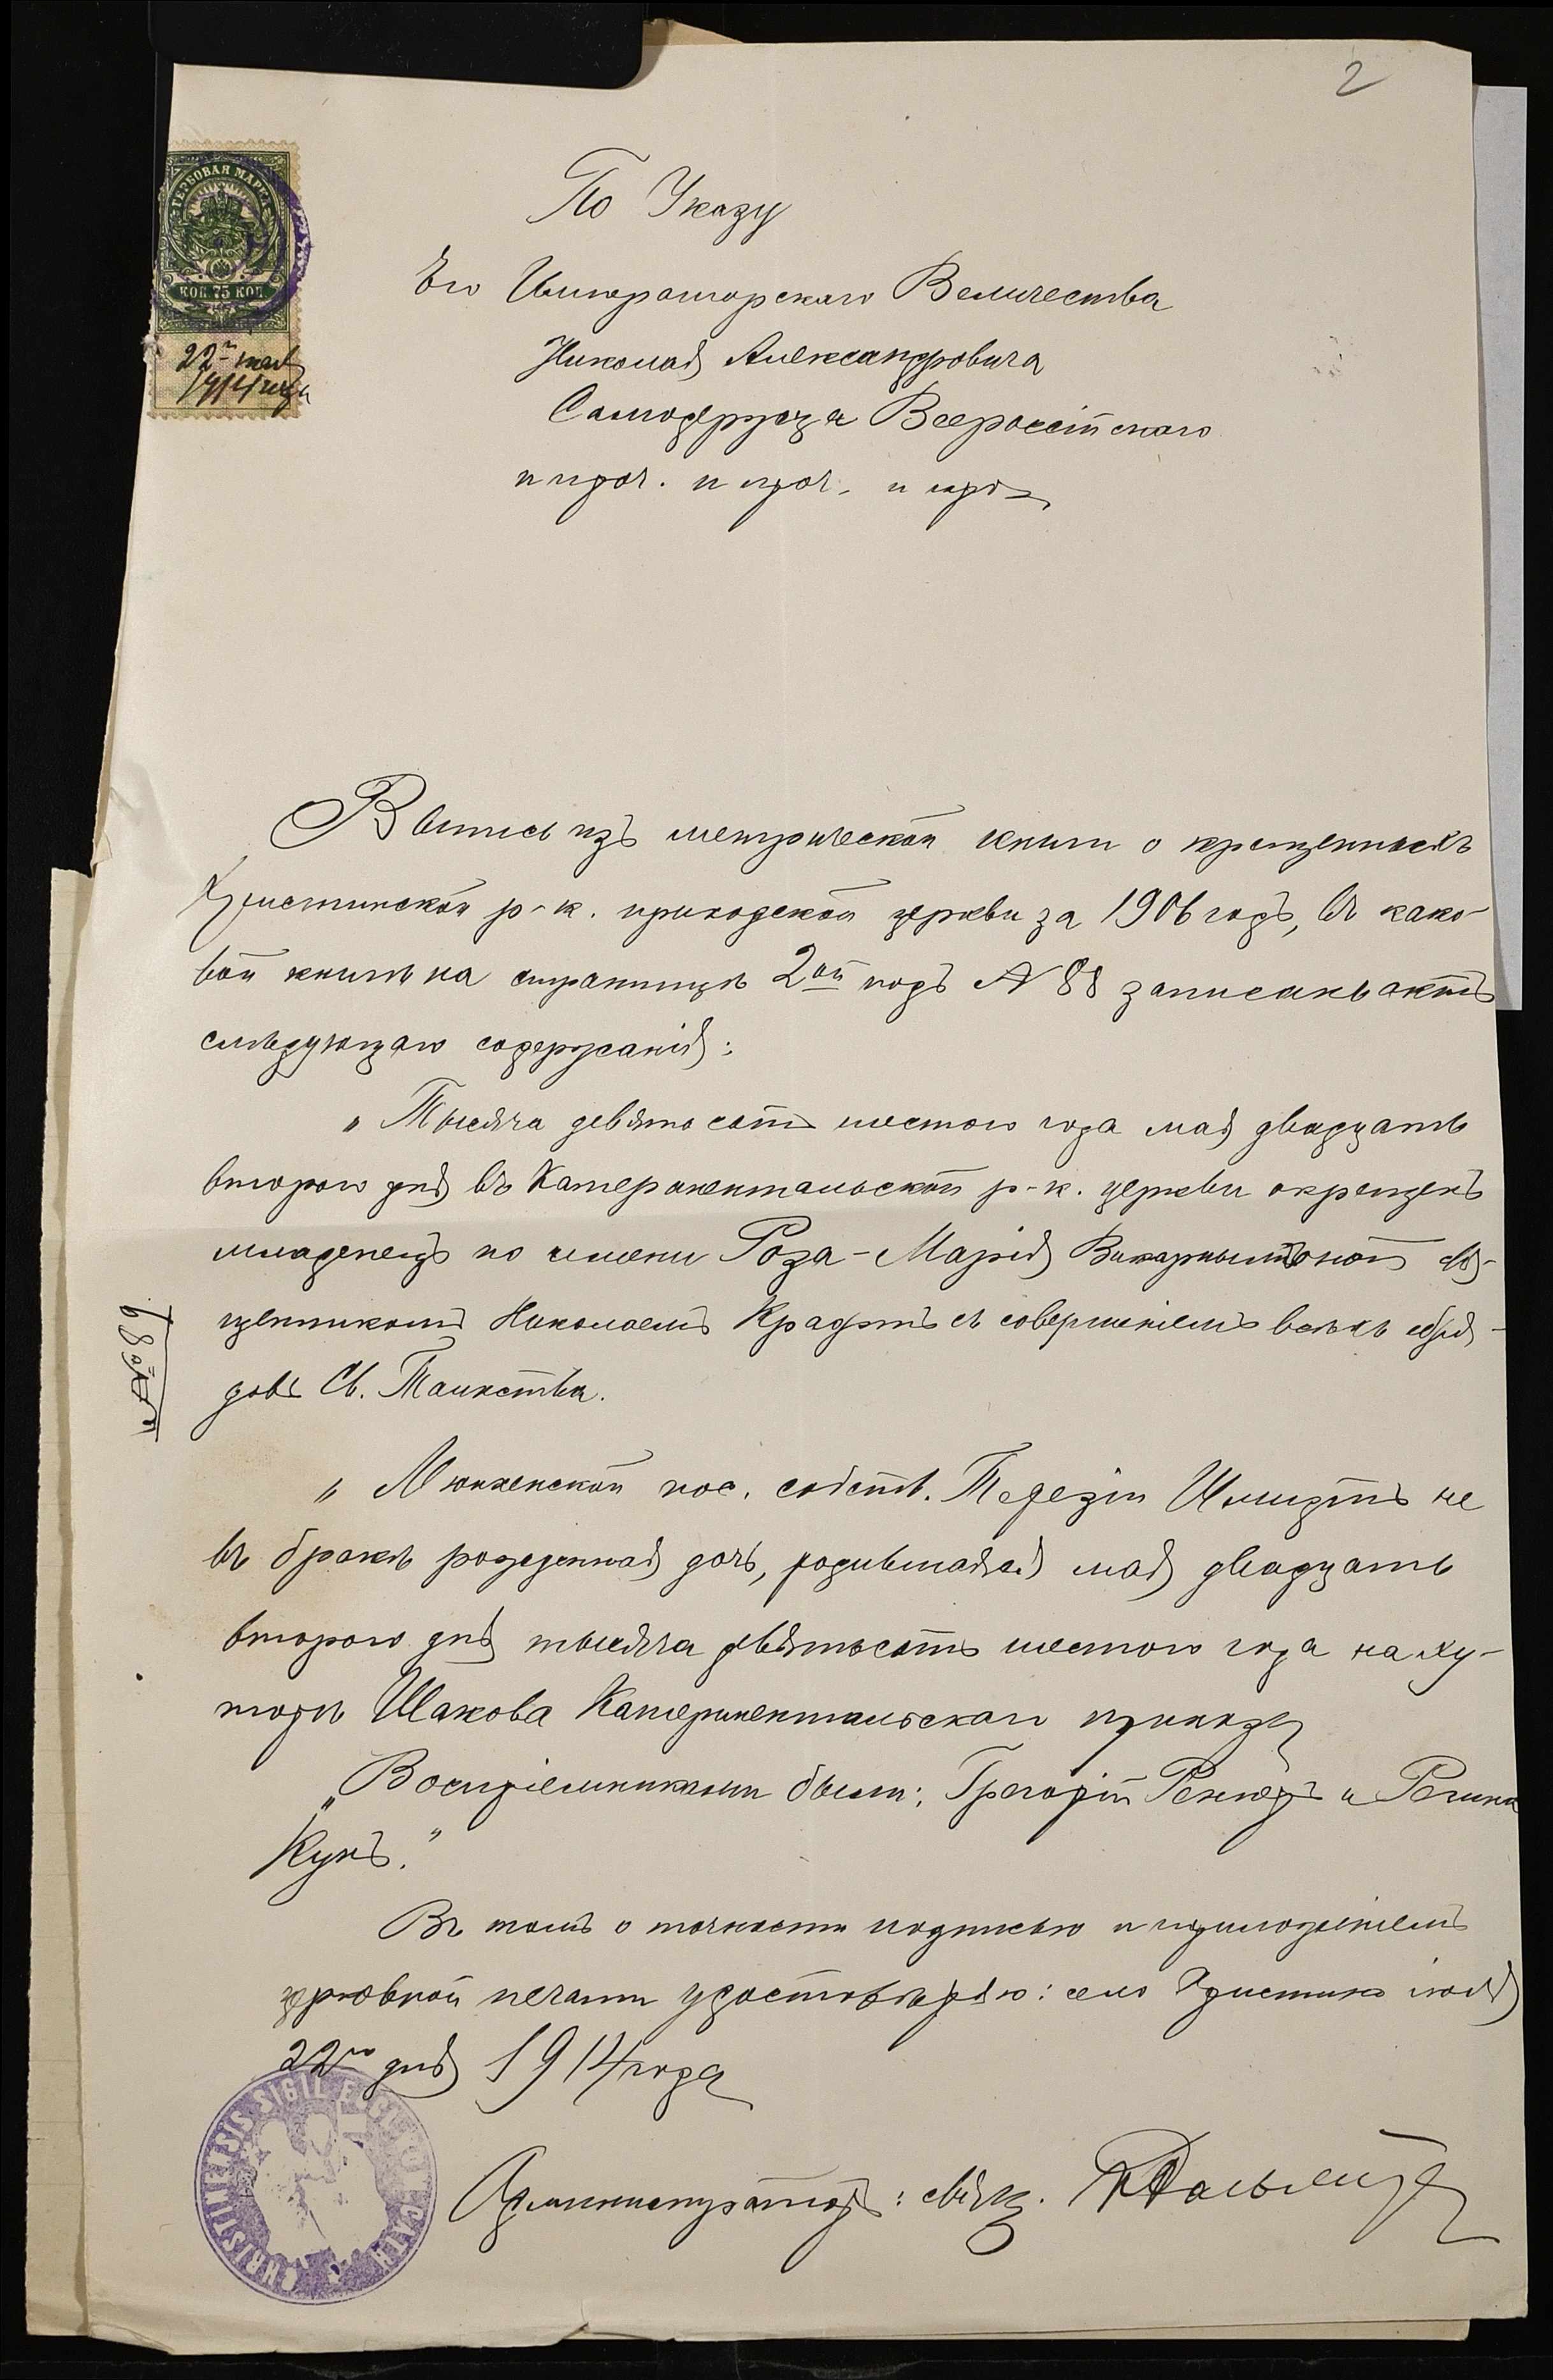 2
ГЕРБОВАЯ МАРКА
КОП 75 КОП
22
1914 года
По Указу
Его Императорскаго Величества
Николая Александровича
Самодержца Всероссійскаго
и проч. и проч. и проч.
Выпись изъ метрической книги о крещенныхъ
Христинской р-к. приходской церкви за 1906 годъ, въ како-
вой книгѣ на страницѣ 2ой подъ N 88 записанъ актъ
слѣдующаго содержанія:
„ Тысяча девятьсотъ шестого года мая двадцать
второго дня въ Катеринентальской р-к. церкви окрещенъ
младенецъ по имени Роза-Марія Викарнымъ свя-
щенникомъ Николаемъ Крафтъ съ совершеніемъ всѣхъ обря-
довъ Св. Таинства.
„ Мюнхенской пос. собств. Терезіи Шмидтъ не
въ бракѣ рожденная дочь, родившаяся мая двадцать
второго дня тысяча девятьсотъ шестого года на ху-
торѣ Шакова Катеринентальскаго прихода
„Воспріемниками были: Грегорій и Регина
Кунъ."
Въ томъ о точности подписью и приложеніемъ
церковной печати удостовѣряю: село Христина іюля
22го дня 1914 года
CHRISTINENSIS SIGIL ECCL ROM CATH
Администраторъ: свящ.